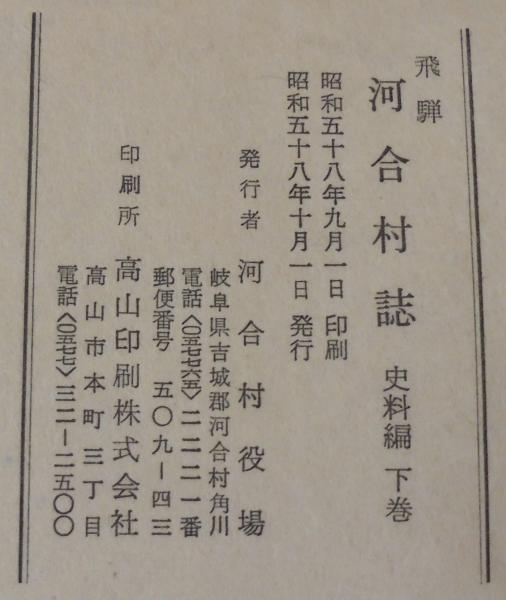 飛騨
河合村誌 史料編 下巻
昭和五十八年九月一日 印刷
昭和五十八年十月一日 発行
発行者 河合村役場
岐阜県吉城郡河合村角川
電話〈〇五七七六五〉二二二一番
郵便番号 五〇九―四三
印刷所 高山印刷株式会社
高山市本町三丁目
電話〈〇五七七〉三二―二五〇〇